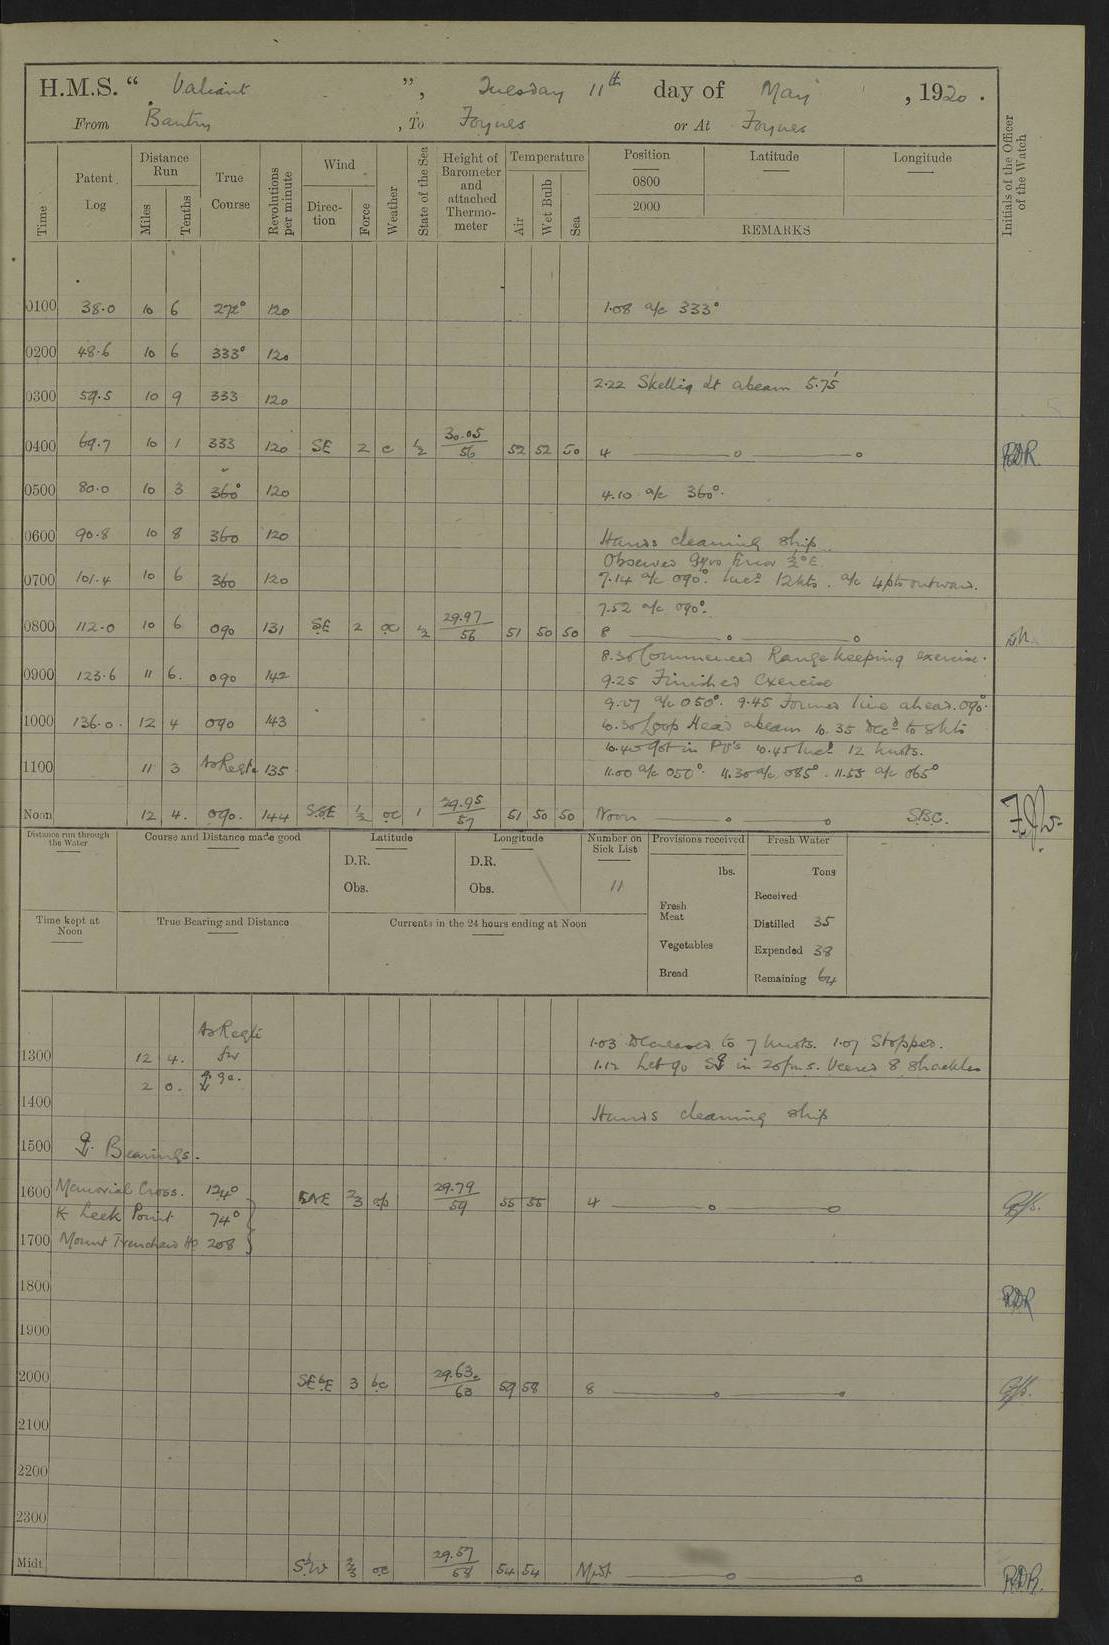 H.M.S. “ Valiant ”, Tuesday 11th day of May, 1920.
From Bantry, To Foynes or At Foynes
Time
Patent Log
Distance Run
Miles
Tenths
True Course
Revolutions per minute
Wind
Direction
Force
Weather
State of the Sea
Height of Barometer and attached Thermometer
Temperature
Air
Wet Bulb
Sea
Position
0800
2000
Latitude
Longitude
REMARKS
Initials of the Officer of the Watch
0100 38.0 10 6 272° 120 1.08 a/c 333°
0200 48.6 10 6 333° 120
2.22 Skellig Lt abeam 5.75'
0300 59.5 10 9 333 120
0400 69.7 10 1 333 120 SE 2 c ½ 30.05/56 52 52 50 4 RDR
0500 80.0 10 3 360° 120 4.10 a/c 360°.
0600 90.8 10 8 360 120 Hands cleaning ship
Observed Gyro Error ½° E.
0700 101.4 10 6 360 120 7.14 a/c 090°. Incd 12 kts. a/c 4 pts outward.
7.52 a/c 090°.
0800 112.0 10 6 090 131 SE 2 oc ½ 29.97/56 51 50 50 8
8.30 Commenced Rangekeeping exercise.
0900 123.6 11 6. 090 142 9.25 Finished Exercise
9.27 a/c 050°. 9.45 Formed line ahead. 090°.
1000 136.0. 12 4 090 143 10.30 Loop Head abeam 10.35 Decd to 8 kts
10.40 Got in PV's 10.45 Incd 12 knots.
1100 11 3 As Reqte 135 11.00 a/c 050°. 11.30 a/c 085°. 11.55 a/c 065°
Noon 12 4. 090. 144 SSE ½ oc 1 29.95/57 51 50 50 Noon
Distance run through the Water
Course and Distance made good
Latitude
D.R.
Obs.
Longitude
D.R.
Obs.
Number on Sick List
11
Provisions received
lbs.
Fresh Meat
Vegetables
Bread
Fresh Water
Tons
Received
Distilled 35
Expended 38
Remaining 64
Time kept at Noon
True Bearing and Distance
Currents in the 24 hours ending at Noon
As Reqte
for
1.03 Decreased to 7 knots. 1.07 Stopped.
1300 12 4.
1.12 Let go in 20 fms. Veered 8 shackles
2 0. ge.
1400
Hands cleaning ship
1500 Bearings.
1600 Memorial Cross. 124° ENE 2/3 29.79/59 55 55 4
K Leek Point 74°
1700 Mount Trenchard Ho 208
1800 RDR
1900
2000 SEbE 3 bc 29.63/63 59 58 8
2100
2200
2300
Midt SbW 2/3 oc 29.57/58 54 54 Midt RDR.